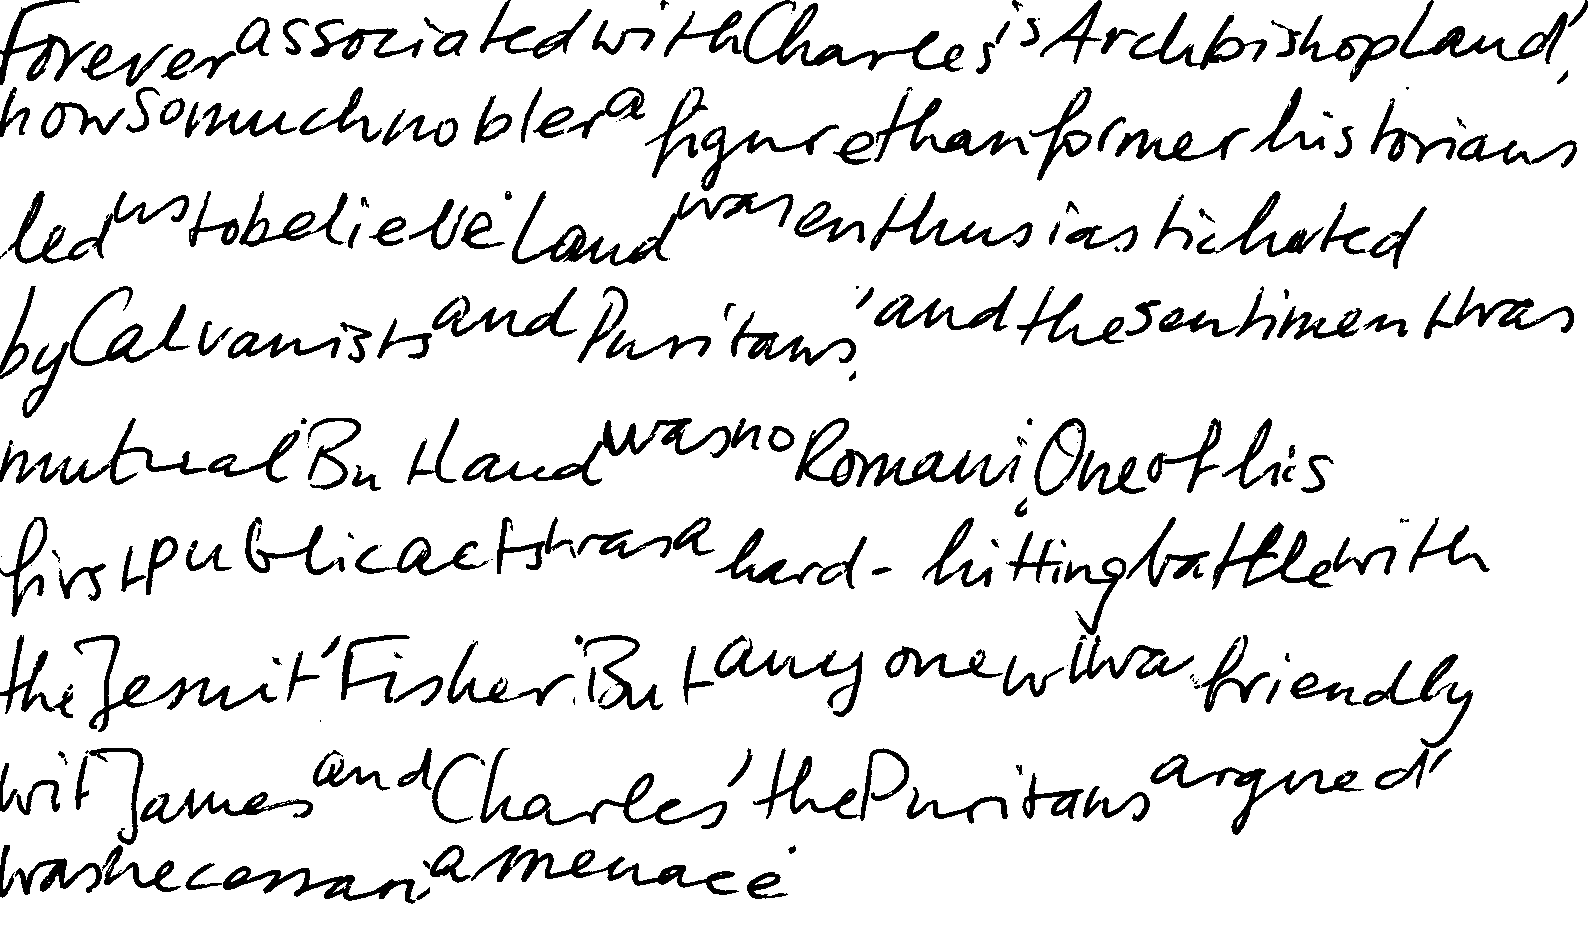 Forever associated with Charles is Archbishop Laud,
how so much nobler a figure than former historians
led us to believe. Laud was enthusiastic hated
by Calvanists and Puritans, and the sentiment was
mutual. But Laud was no Roman; One of his
first public acts was a hard-hitting battle with
the Jesuit, Fisher. But anyone wwa friendly
wit James and Charles, the Puritans argued,
was necessari a menace.